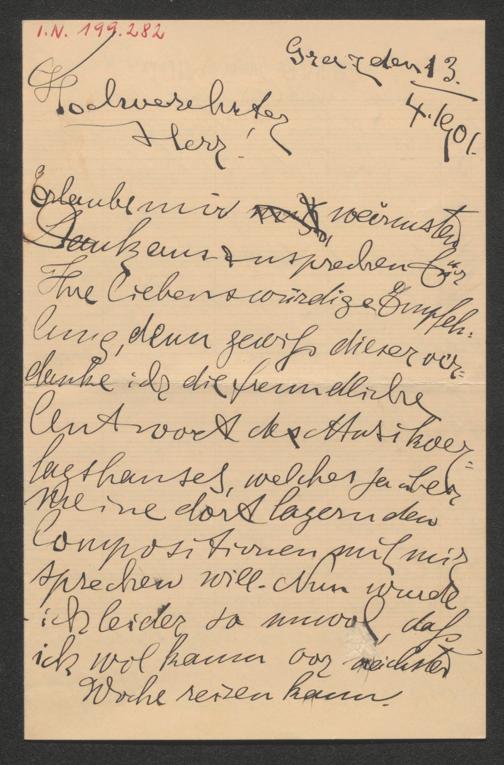 I.N. 199.282
Graz den 13.
4. 1901.
Hochverehrter
Herr!
Erlaube mir wärmsten
Dank auszusprechen für
Ihre liebenswürdige Empfeh-
lung, denn gewiß dieser ver-
danke ich die freundliche
Antwort des Musikver-
lagshauses, welches ja über
meine dort lagernden
Compositionen mit mir
sprechen will. Nun wurde
ich leider so unwol, daß
ich wol kaum vor nächster
Woche reisen kann.